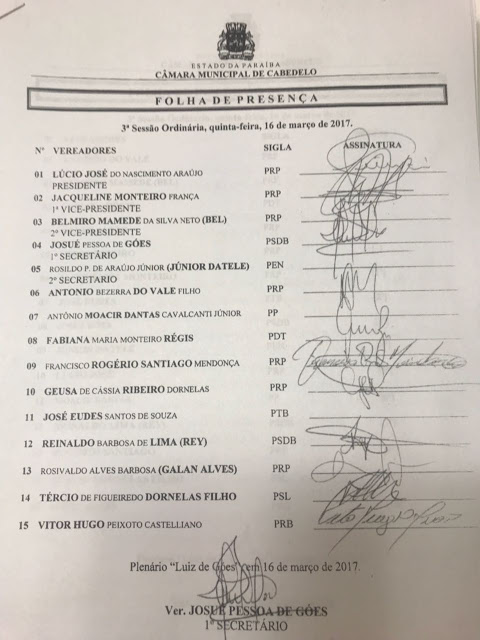 ESTADO DA PARAÍBA
CÂMARA MUNICIPAL DE CABEDELO
FOLHA DE PRESENÇA
3ª Sessão Ordinária, quinta-feira, 16 de março de 2017.
Nº VEREADORES SIGLA ASSINATURA
01 LÚCIO JOSÉ DO NASCIMENTO ARAÚJO PRP
PRESIDENTE
02 JACQUELINE MONTEIRO FRANÇA PRP
1ª VICE-PRESIDENTE
03 BELMIRO MAMEDE DA SILVA NETO (BEL) PRP
2º VICE-PRESIDENTE
04 JOSUÉ PESSOA DE GÓES PSDB
1º SECRETÁRIO
05 ROSILDO P. DE ARAÚJO JÚNIOR (JÚNIOR DATELE) PEN
2º SECRETARIO
06 ANTONIO BEZERRA DO VALE FILHO PRP
07 ANTÔNIO MOACIR DANTAS CAVALCANTI JÚNIOR PP
08 FABIANA MARIA MONTEIRO RÉGIS PDT
09 FRANCISCO ROGÉRIO SANTIAGO MENDONÇA PRP
10 GEUSA DE CÁSSIA RIBEIRO DORNELAS PRP
11 JOSÉ EUDES SANTOS DE SOUZA PTB
12 REINALDO BARBOSA DE LIMA (REY) PSDB
13 ROSIVALDO ALVES BARBOSA (GALAN ALVES) PRP
14 TÉRCIO DE FIGUEIREDO DORNELAS FILHO PSL
15 VITOR HUGO PEIXOTO CASTELLIANO PRB
Plenário "Luiz de Góes" em 16 de março de 2017.
Ver. JOSUÉ PESSOA DE GÓES
1º SECRETÁRIO